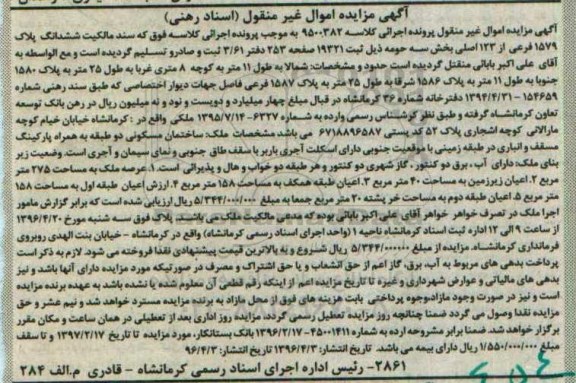 آگهی مزایده اموال غیر منقول (اسناد رهنی)
آگهی مزایده اموال غیر منقول پرونده اجرائی کلاسه ۹۵۰۰۳۸۲ به موجب پرونده اجرائی کلاسه فوق که سند مالکیت ششدانگ پلاک
۱۵۷۹ فرعی از ۱۲۳ اصلی بخش سه حومه ذیل ثبت ۱۹۳۲۱ صفحه ۲۵۳ دفتر ۳/۶۱ ثبت و صادرو تسلیم گردیده است مع الواسطه به
آقای علی اکبر بابائی منتقل گردیده است حدود و مشخصات: شمالا به طول ۱۱ متر به کوچه ۸ متری غربا به طول ۲۵ متر به پلاک ۱۵۸۰
جنوبا به طول ۱۱ متر به پلاک ۱۵۸۶ شرقا به طول ۲۵ متر به پلاک ۱۵۸۷ فرعی فاصل جهات دیوار اختصاصی که طبق سند رهنی شماره
۱۵۴۶۵۹ - ۱۳۹۴/۴/۳۱ دفترخانه شماره ۳۶ کرمانشاه در قبال مبلغ چهار میلیارد و دویست و نود و نه میلیون ریال در رهن بانک توسعه
تعاون کرمانشاه گرفته و طبق نظر کارشناس رسمی وارده به شماره ۶۳۲۷- ۱۳۹۵/۷/۱۴ ملکی واقع در : کرمانشاه خیابان خیام کوچه
مارالانی کوچه اشجاری پلاک ۵۲ کد پستی ۶۷۱۸۸۹۶۵۸۷ می باشد مشخصات ملک: ساختمان مسکونی دو طبقه به همراه پارکینگ
مسقف و انباری در طبقه زمینی با موقعیت جنوبی دارای اسکلت آجری باربر با سقف طاق جنوبی و نمای سیمان و آجری است. وضعیت زیر
بنای ملک: دارای آب ، برق دو کنتور ، گاز شهری دو کنتور و هر طبقه دو خواب و هال و پذیرائی است. ۱. عرصه ملک به مساحت ۲۷۵ متر
مربع ۲. اعیان زیرزمین به مساحت ۴۰ متر مربع ۳. اعیان طبقه همکف به مساحت ۱۵۸ متر مربع ۴. ارزش اعیان طبقه اول به مساحت ۱۵۸
متر مربع ۵. اعیان طبقه دوم به مساحت خر پشته ۲۰ متر مربع جمعا به مبلغ ۵/۳۴۴/۰۰۰/۰۰۰ ریال ارزیابی شده است که برابر گزارش مامور
اجرا ملک در تصرف خواهر خواهر آقای علی اکبر بابائی بوده که مدعی مالکیت ملک می باشند. پلاک فوق سه شنبه مورخ ۱۳۹۶/۴/۲۰
از ساعت ۹ الی ۱۲ اداره ثبت اسناد کرمانشاه ناحیه ۱ (واحد اجرای اسناد رسمی کرمانشاه) واقع در کرمانشاه - خیابان بنت الهدی روبروی
فرمانداری کرمانشاه. مزایده از مبلغ ۵/۳۴۴/۰۰۰۰۰۰ ریال شروع و به بالاترین قیمت پیشنهادی نقدا فروخته می شود. لازم به ذکر است
پرداخت بدهی های مربوط به آب، برق، گاز اعم از حق انشعاب و یا حق اشتراک و مصرف در صورتیکه مورد مزایده دارای آنها باشد و نیز
بدهی های مالیاتی و عوارض شهرداری و غیره تا تاریخ مزایده اعم از اینکه رقم قطعی آن معلوم شده یا نشده باشد به عهده برنده مزایده
است و نیز در صورت وجود مازاد،وجوه پرداختی بابت هزینه های فوق از محل مازاد به برنده مزایده مسترد خواهد شد و نیم عشر و حق
مزایده نقدا وصول می گردد ضمنا چنانچه روز مزایده تعطیل رسمی گردد، مزایده روز اداری بعد از تعطیلی در همان ساعت و مکان مقرر
برگزار خواهد شد. ضمنا برابر مشروحه ارده به شماره ۴۵۰۰۱۴۱۱- ۱۳۹۶/۲/۱۷ بانک بستانکار، مورد مزایده تا تاریخ ۱۳۹۷/۲/۱۷ و تا سقف
مبلغ ۱/۵۵۰/۰۰۰/۰۰۰ ریال دارای بیمه می باشد. تاریخ انتشار: ۱۳۹۶/۴/۳ تاریخ انتشار: ۹۶/۴/۳
۲۸۶۱- رئیس اداره اجرای اسناد رسمی کرمانشاه - قادری م.الف ۲۸۴